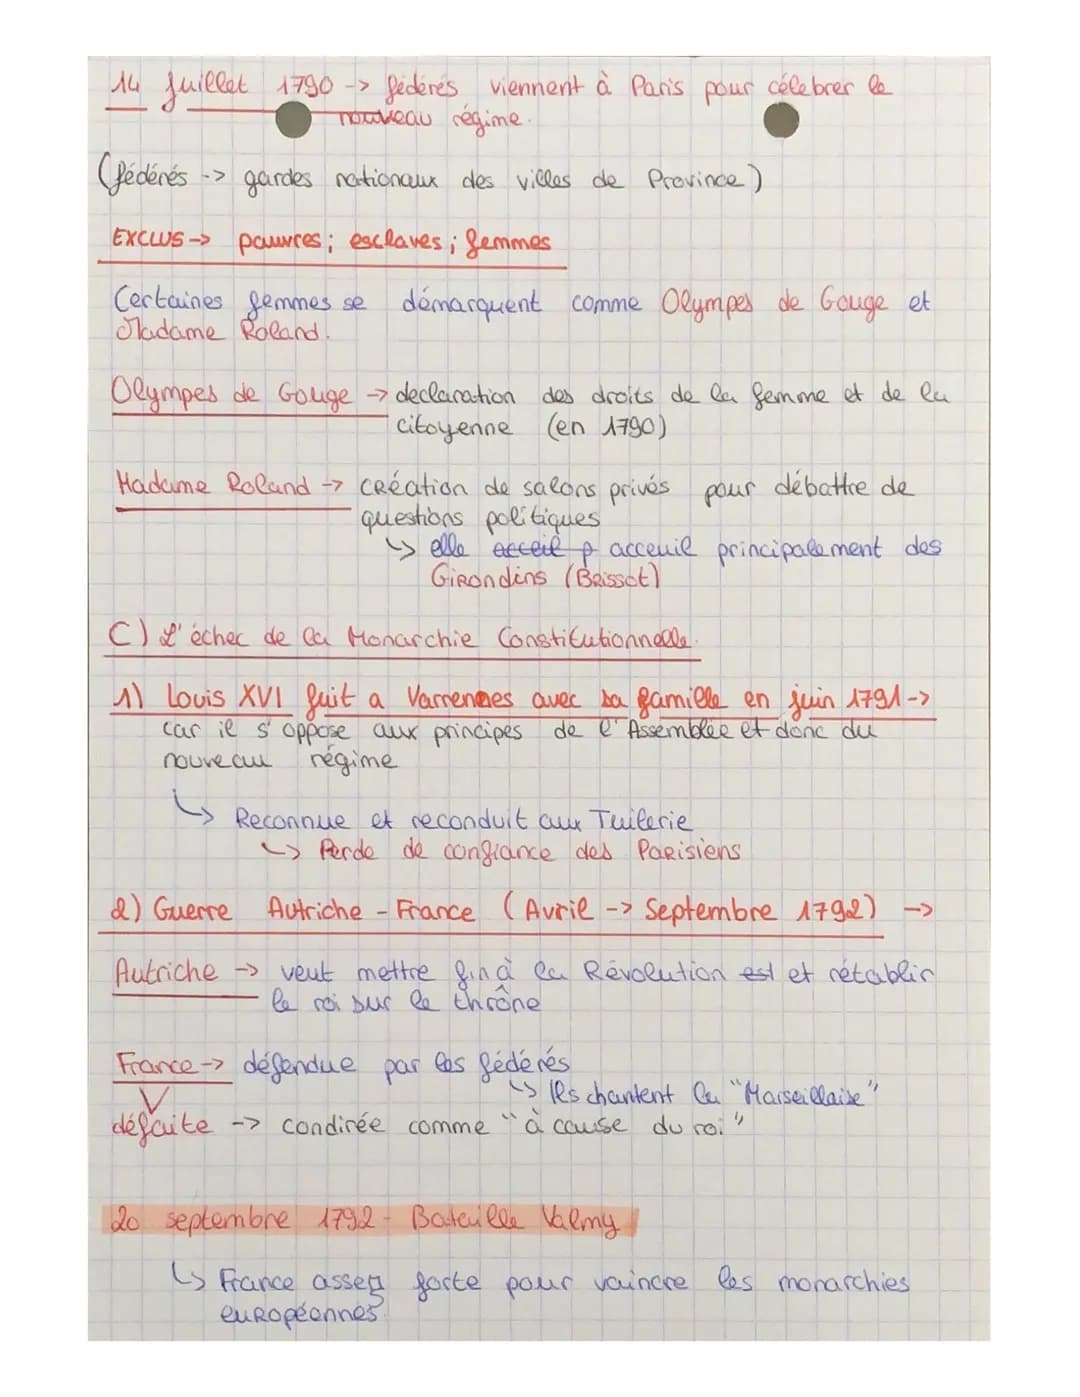 14 Juillet 1790 -> fédérés viennent à Paris pour célebrer le
nouveau régime.
(fédérés -> gardes nationaux des villes de Province)
EXCLUS -> pauvres ; esclaves ; femmes
Certaines femmes se démarquent comme Olympes de Gouge et
Madame Roland.
Olympes de Gouge -> declaration des droits de la femme et de la
citoyenne (en 1790)
Madame Roland -> création de salons privés pour débattre de
questions politiques
↳ elle acceil p acceuil principalement des
Girondins (Brissot)
C) L'échec de la Monarchie Constitutionnelle.
1) Louis XVI fuit a Varrennes avec sa famille en juin 1791 ->
car il s'oppose aux principes de l'Assemblée et donc du
nouveau régime
↳ Reconnue et reconduit aux Tuilerie
↳ Perde de confiance des Parisiens
2) Guerre Autriche - France (Avril -> Septembre 1792) ->
Autriche -> veut mettre fin à la Révolution est et rétablir
le roi sur le thrône
France -> défendue par les fédérés
↳ Ils chantent la "Marseillaise"
défaite -> condirée comme "à cause du roi"
20 septembre 1792 - Bataille Valmy
↳ France assez forte pour vaincre les monarchies
européennes.